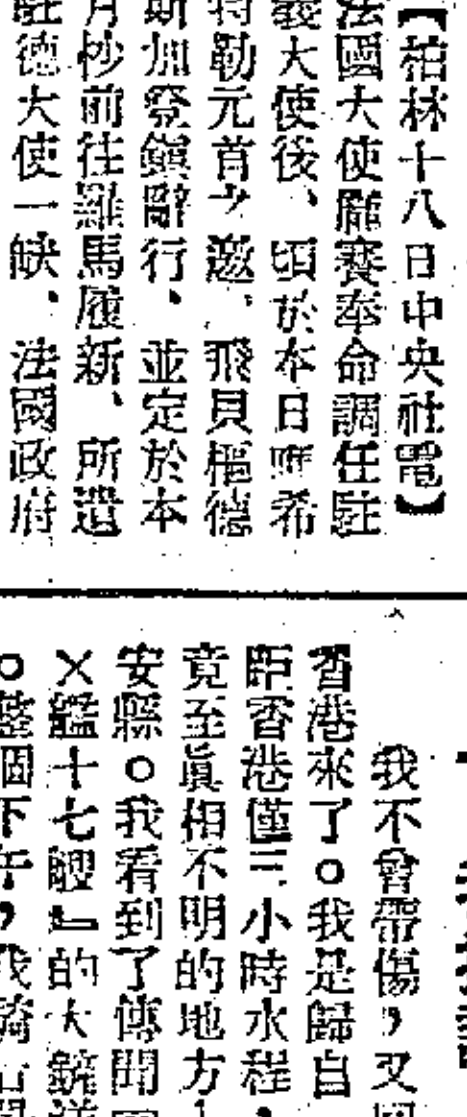 【柏林十八日中央社電】
法國大使龐賽奉命調任駐
義大使後、頃於本日應希
特勒元首之邀、飛貝樞德
斯加登鎮辭行、並定於本
月杪前往羅馬履新、所遺
駐德大使一缺、法國政府
我不會帶傷，又
香港來了。我是歸自
距香港僅三小時水程，
竟至眞相不明的地方！
安縣。我看到了傳聞
×艦十七艘』的大鵬
。整個下午，我騎